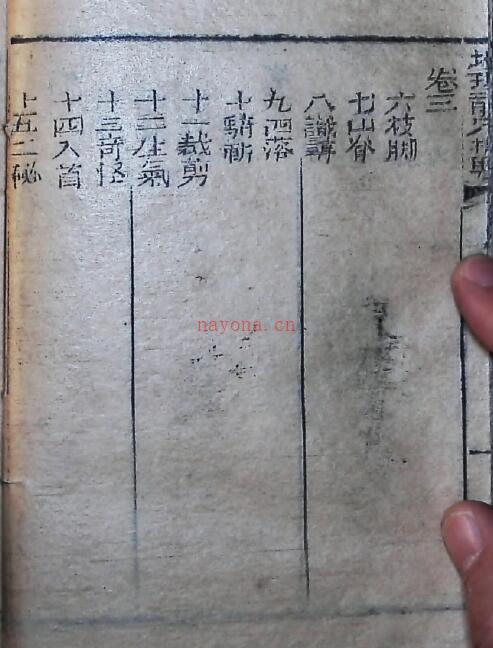 卷三
六枝脚
七山脊
八識尋
九泗落
十騎斬
十一裁剪
十二生氣
十三奇怪
十四入首
十五二秘
nayona.cn